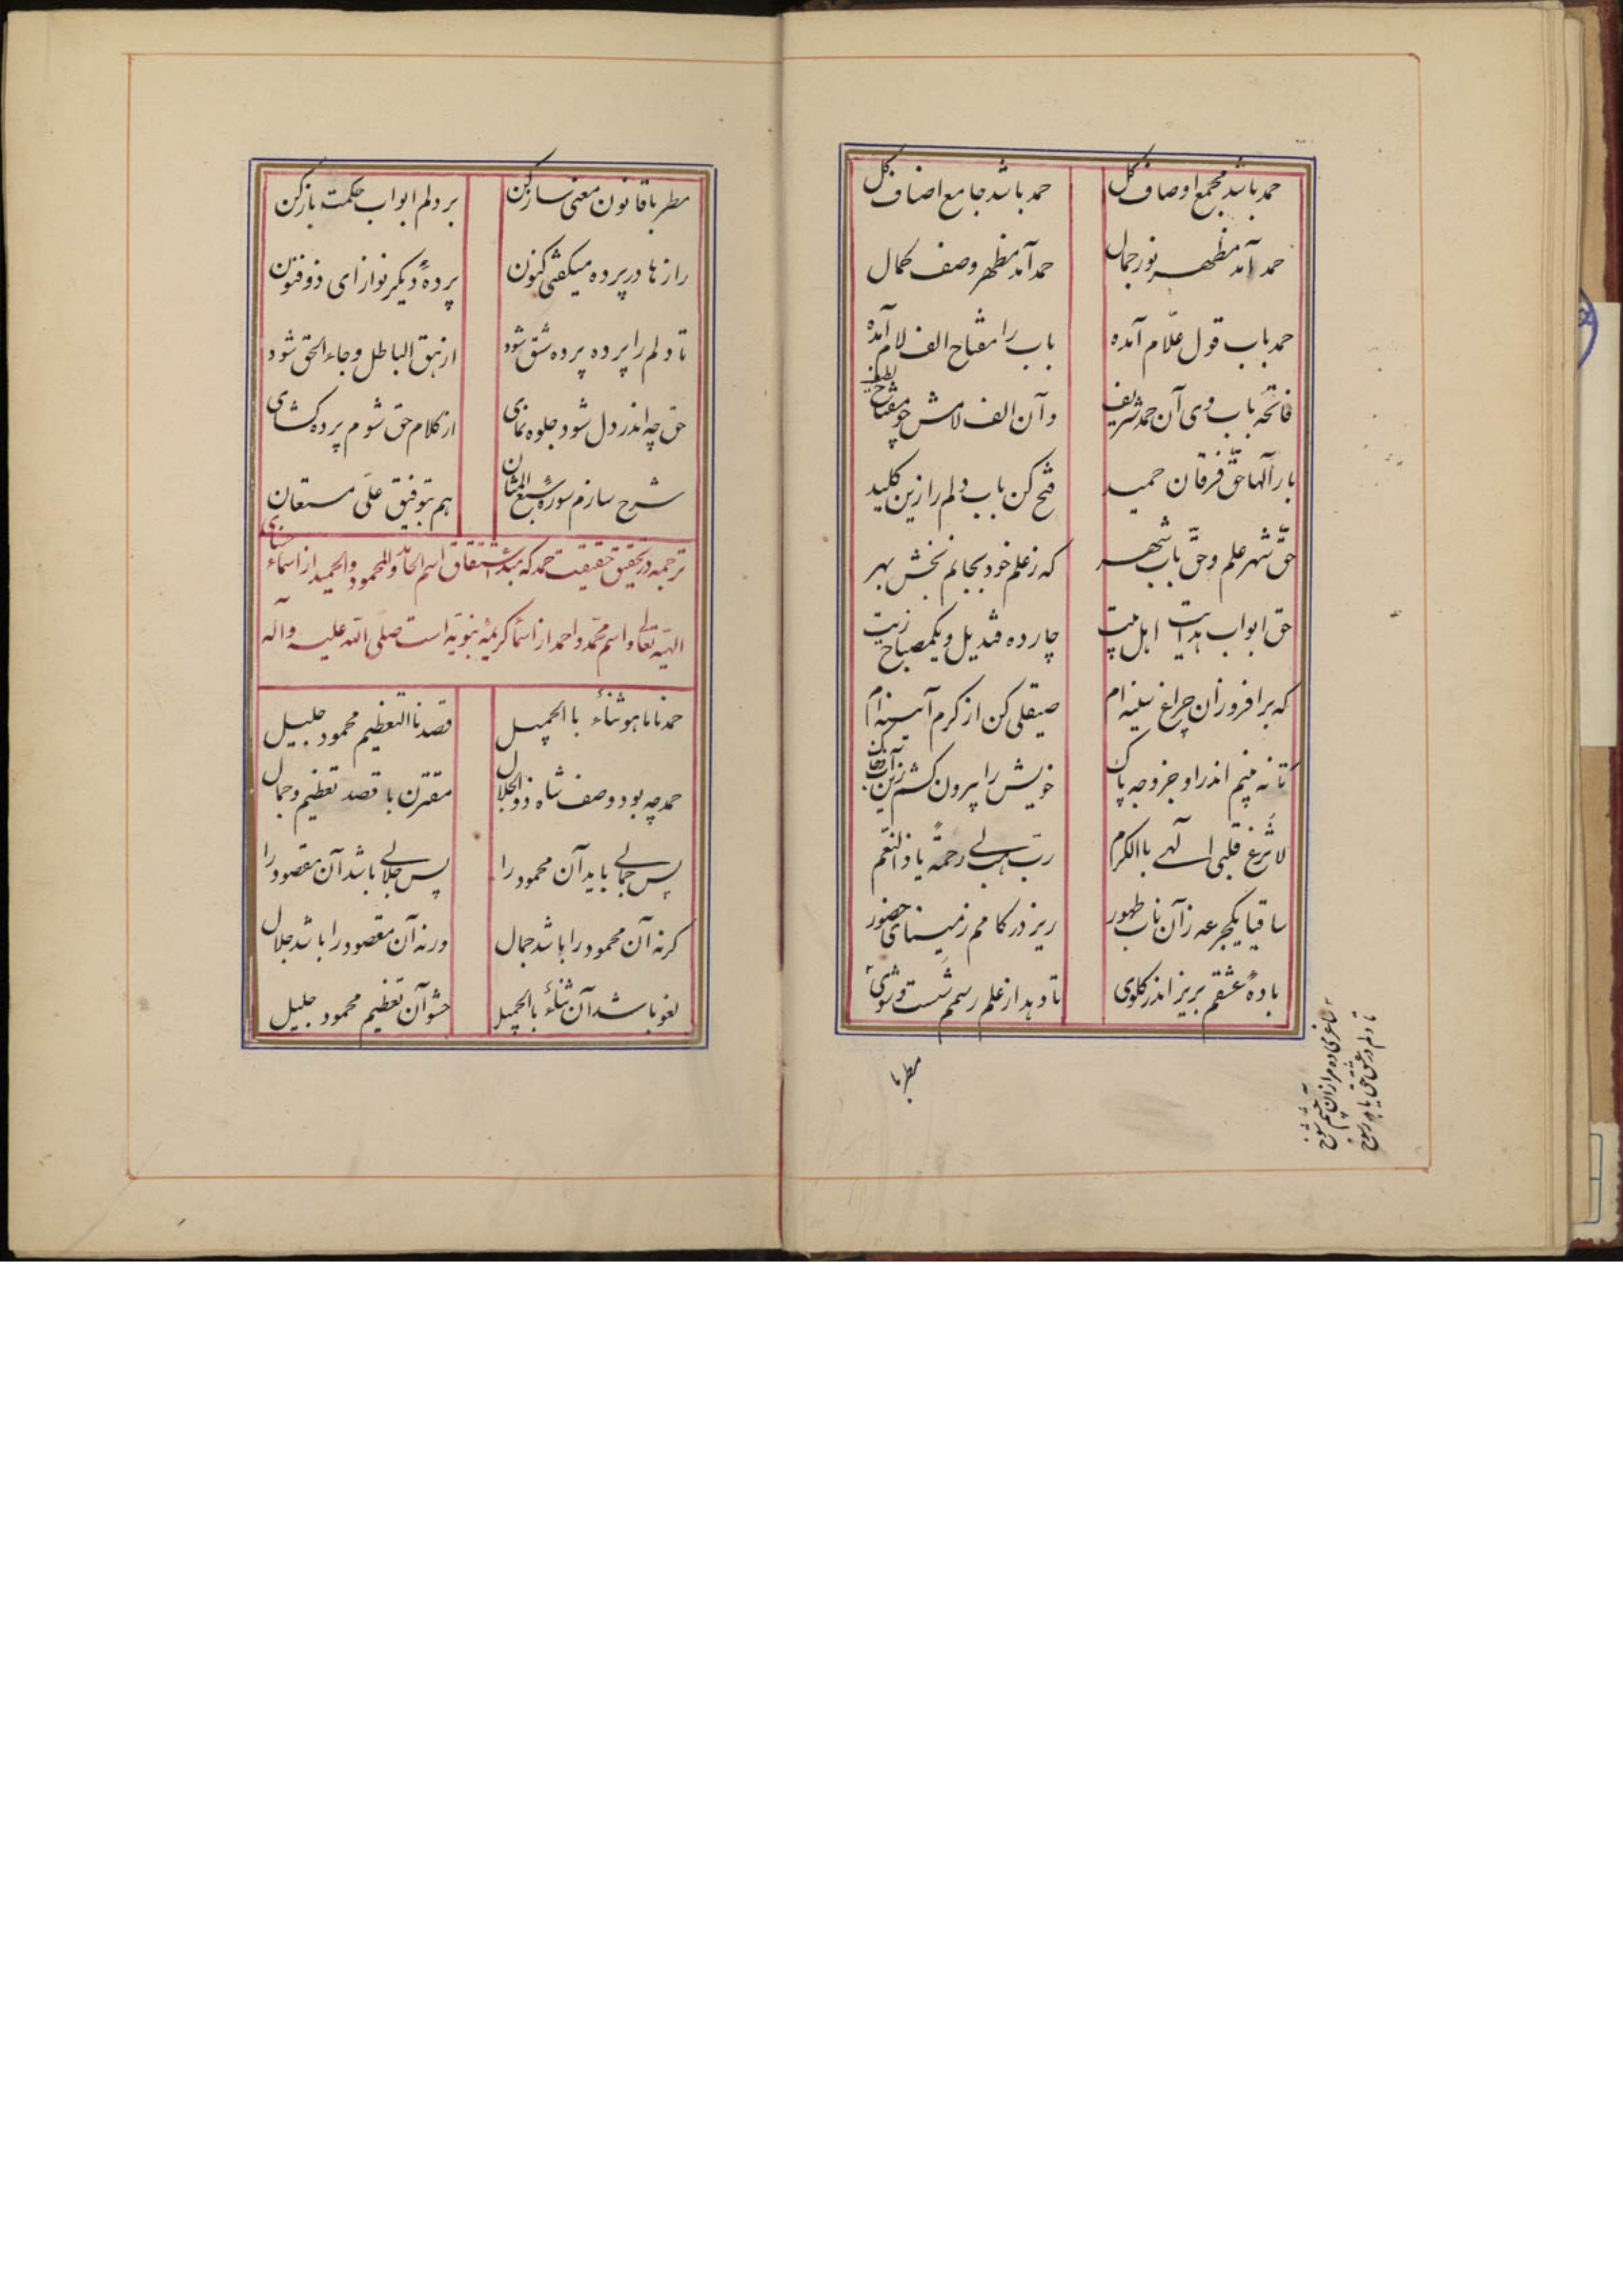 حمد باشد مجمع اوصاف کل حمد باشد جامع اصناف کل
حمد آمد مظهر نور جمال حمد آمد مظهر وصف کمال
حمد باب قول علّام آمده باب را مفتاح الف لام آمده
فاتحه باب وی آن حمد شریف وآن الف لامش چو مفتاح
بار آلها حقّ فرقان حمید فتح کن باب دلم را زین کلید
حقّ شهر علم و حقّ باب شهر که ز علم خود بجانم بخش بهر
حق ابواب هدایت اهل بیت چارده قندیل و یکمصباح زیت
که برافروز آن چراغ سینه ام صیقلی کن از کرم آیینه ام
تا نه بینم اندر او جز وجه پاک خویش را بیرون کشم زین
لا تزغ قلبی الهی با الکرم ربّ هب لی رحمةً یا ذالنعم
ساقیا یکجرعه زآن ناب طهور ریز در کامم ز مینای حضور
بادهٔ عشقم بریز اندر کلوی تا دهد از علم رسمم شست وشوی
مطربا
مطربا قانون معنی ساز کن بر دلم ابواب حکمت باز کن
راز ها در پرده میکفتی کنون پردهٔ دیکر نواز ای ذوفنون
تا دلم را پرده پرده شق شود از زهق الباطل وجاء الحق شود
حق چه اندر دل شود جلوه نمای از کلام حق شوم پرده کشای
شرح سازم سورهٔ سبع المثان هم بتوفیق علّی مستعان
ترجمه در تحقیق حقیقت حمد که مبدء اشتقاق اسم الحامد والمحمود والحمید از اسماء
الهیّه تعالی واسم محمّد واحمد از اسماء کریمهٔ نبویّه است صلّی الله علیه وآله
حمدنا ما هو ثناء با الجمیل قصدنا التعظیم محمود جلیل
حمد چه بود وصف شاه ذوالجلال مقترن با قصد تعظیم وجمال
پس جمالی باید آن محمود را پس جلالی باشد آن مقصود را
کرنه آن محمود را باشد جمال ورنه آن مقصود را باشد جلال
لغو باشد آن ثناء با الجمیل حشو آن تعظیم محمود جلیل